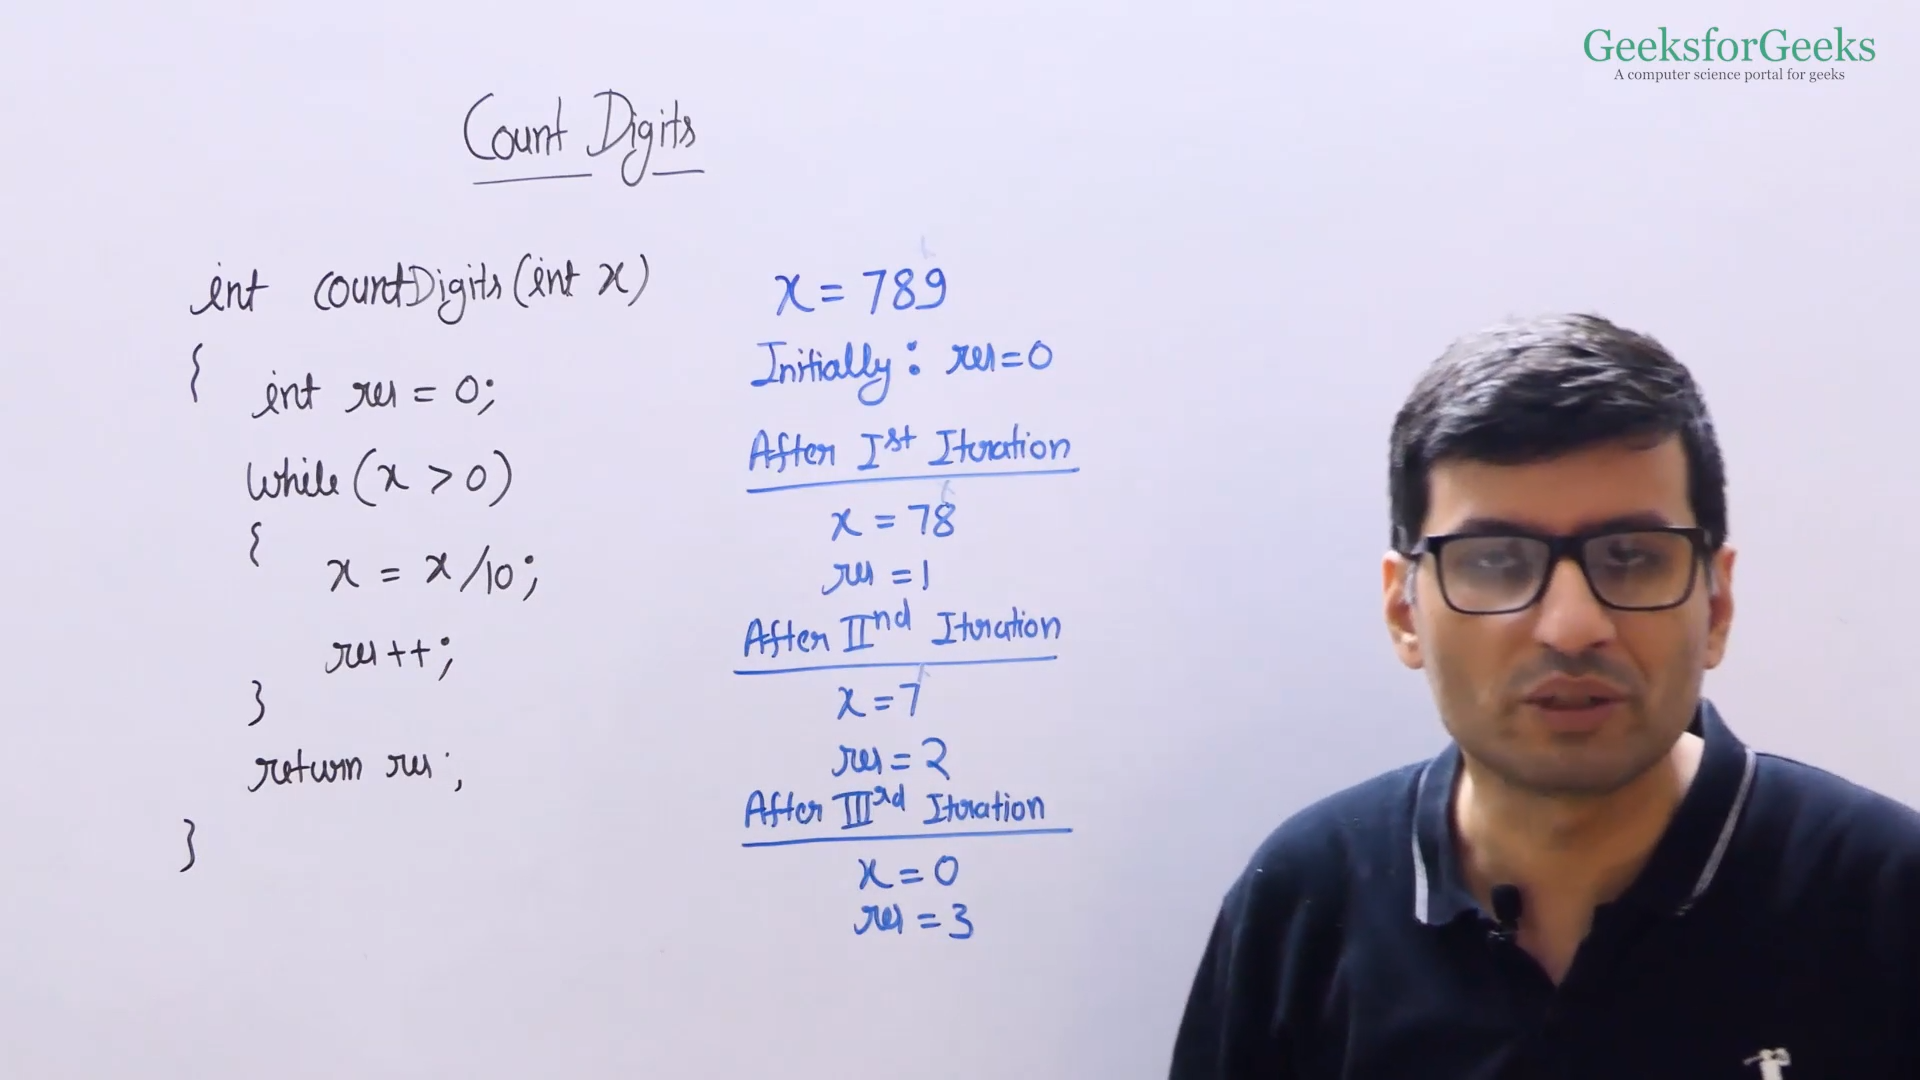 GeeksforGeeks
A computer science portal for geeks
Count Digits
int countDigits(int x)
{
int res = 0;
while (x > 0)
{
x = x/10;
res++;
}
return res;
}
x = 789
Initially: res=0
After Ist Iteration
x = 78
res = 1
After IInd Iteration
x = 7
res = 2
After IIIrd Iteration
x = 0
res = 3